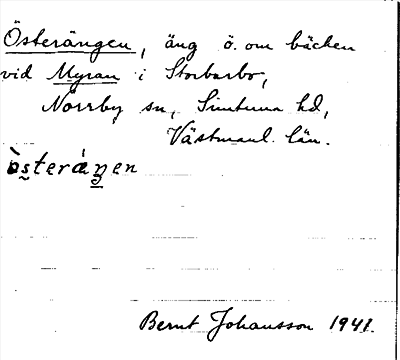 Österängen, äng ö. om bäcken
vid Myran i Storbarbo,
Norrby sn, Simtuna hd,
Västmanl. län.
òsteráŋen
Bernt Johansson 1941.